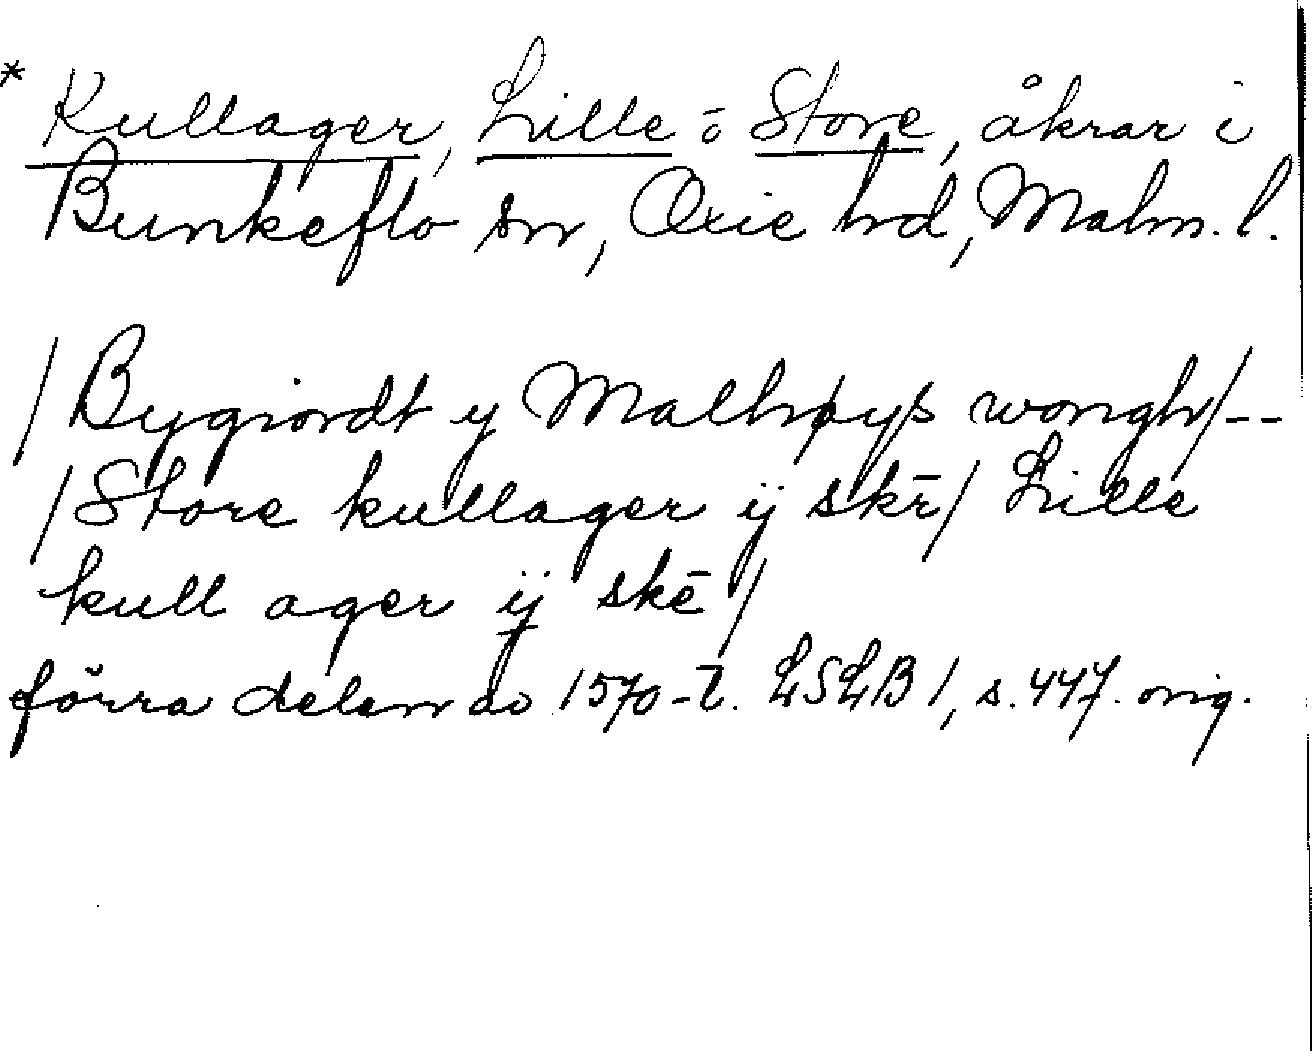 * Kullager, Lille o Store, åkrar i
Bunkeflo sn, Oxie hd, Malm. l.
/ Bygiordt y Malhøys wongh/--
/ Store kullager ij skē/ Lille
kull ager ij skē /
förra delen av 1570-t. LSLB 1, s. 447. orig.